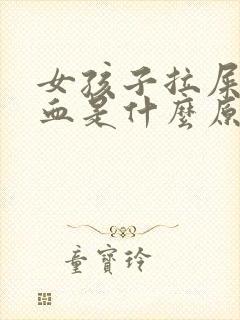 女孩子拉屎
血是什麼原
童寶玲